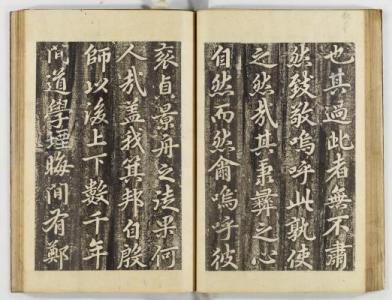 也其過此者無不肅
然致敬嗚呼此孰使
之然哉其秉彝之心
自然而然爾嗚呼彼
袞貞景舟之徒果何
人哉盖我箕邦自殷
師以後上下數千年
間道學堙晦間有鄭